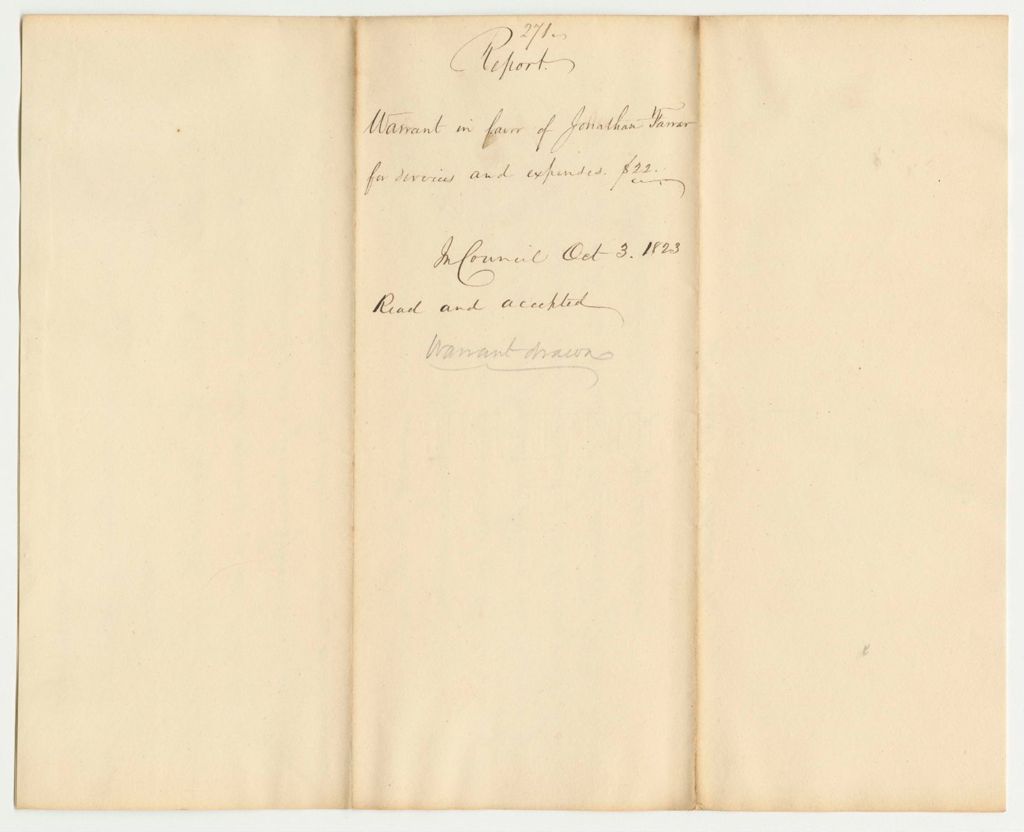 271.
Report.
Warrant in favor of Jonathan Farrar
for services and expenses. $22.
In Council Oct 3. 1823
Read and accepted
Warrant drawn